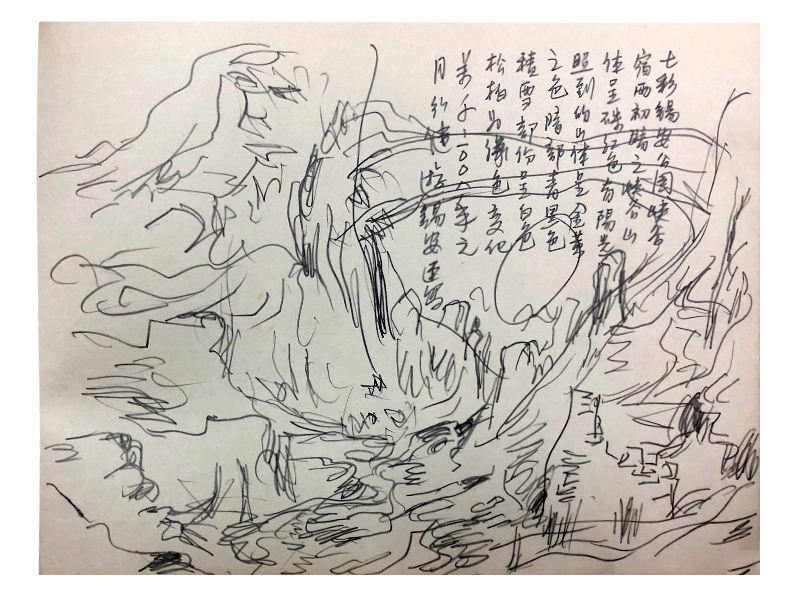 七彩锡安公園峡谷
宿雨初晴之峡谷山
体呈硃红色有陽光
照到的山体呈金黄
之色暗部青黑色
積雪部份呈白色
松柏为绿色变化
美于二〇〇八年元
月 游锡安速写